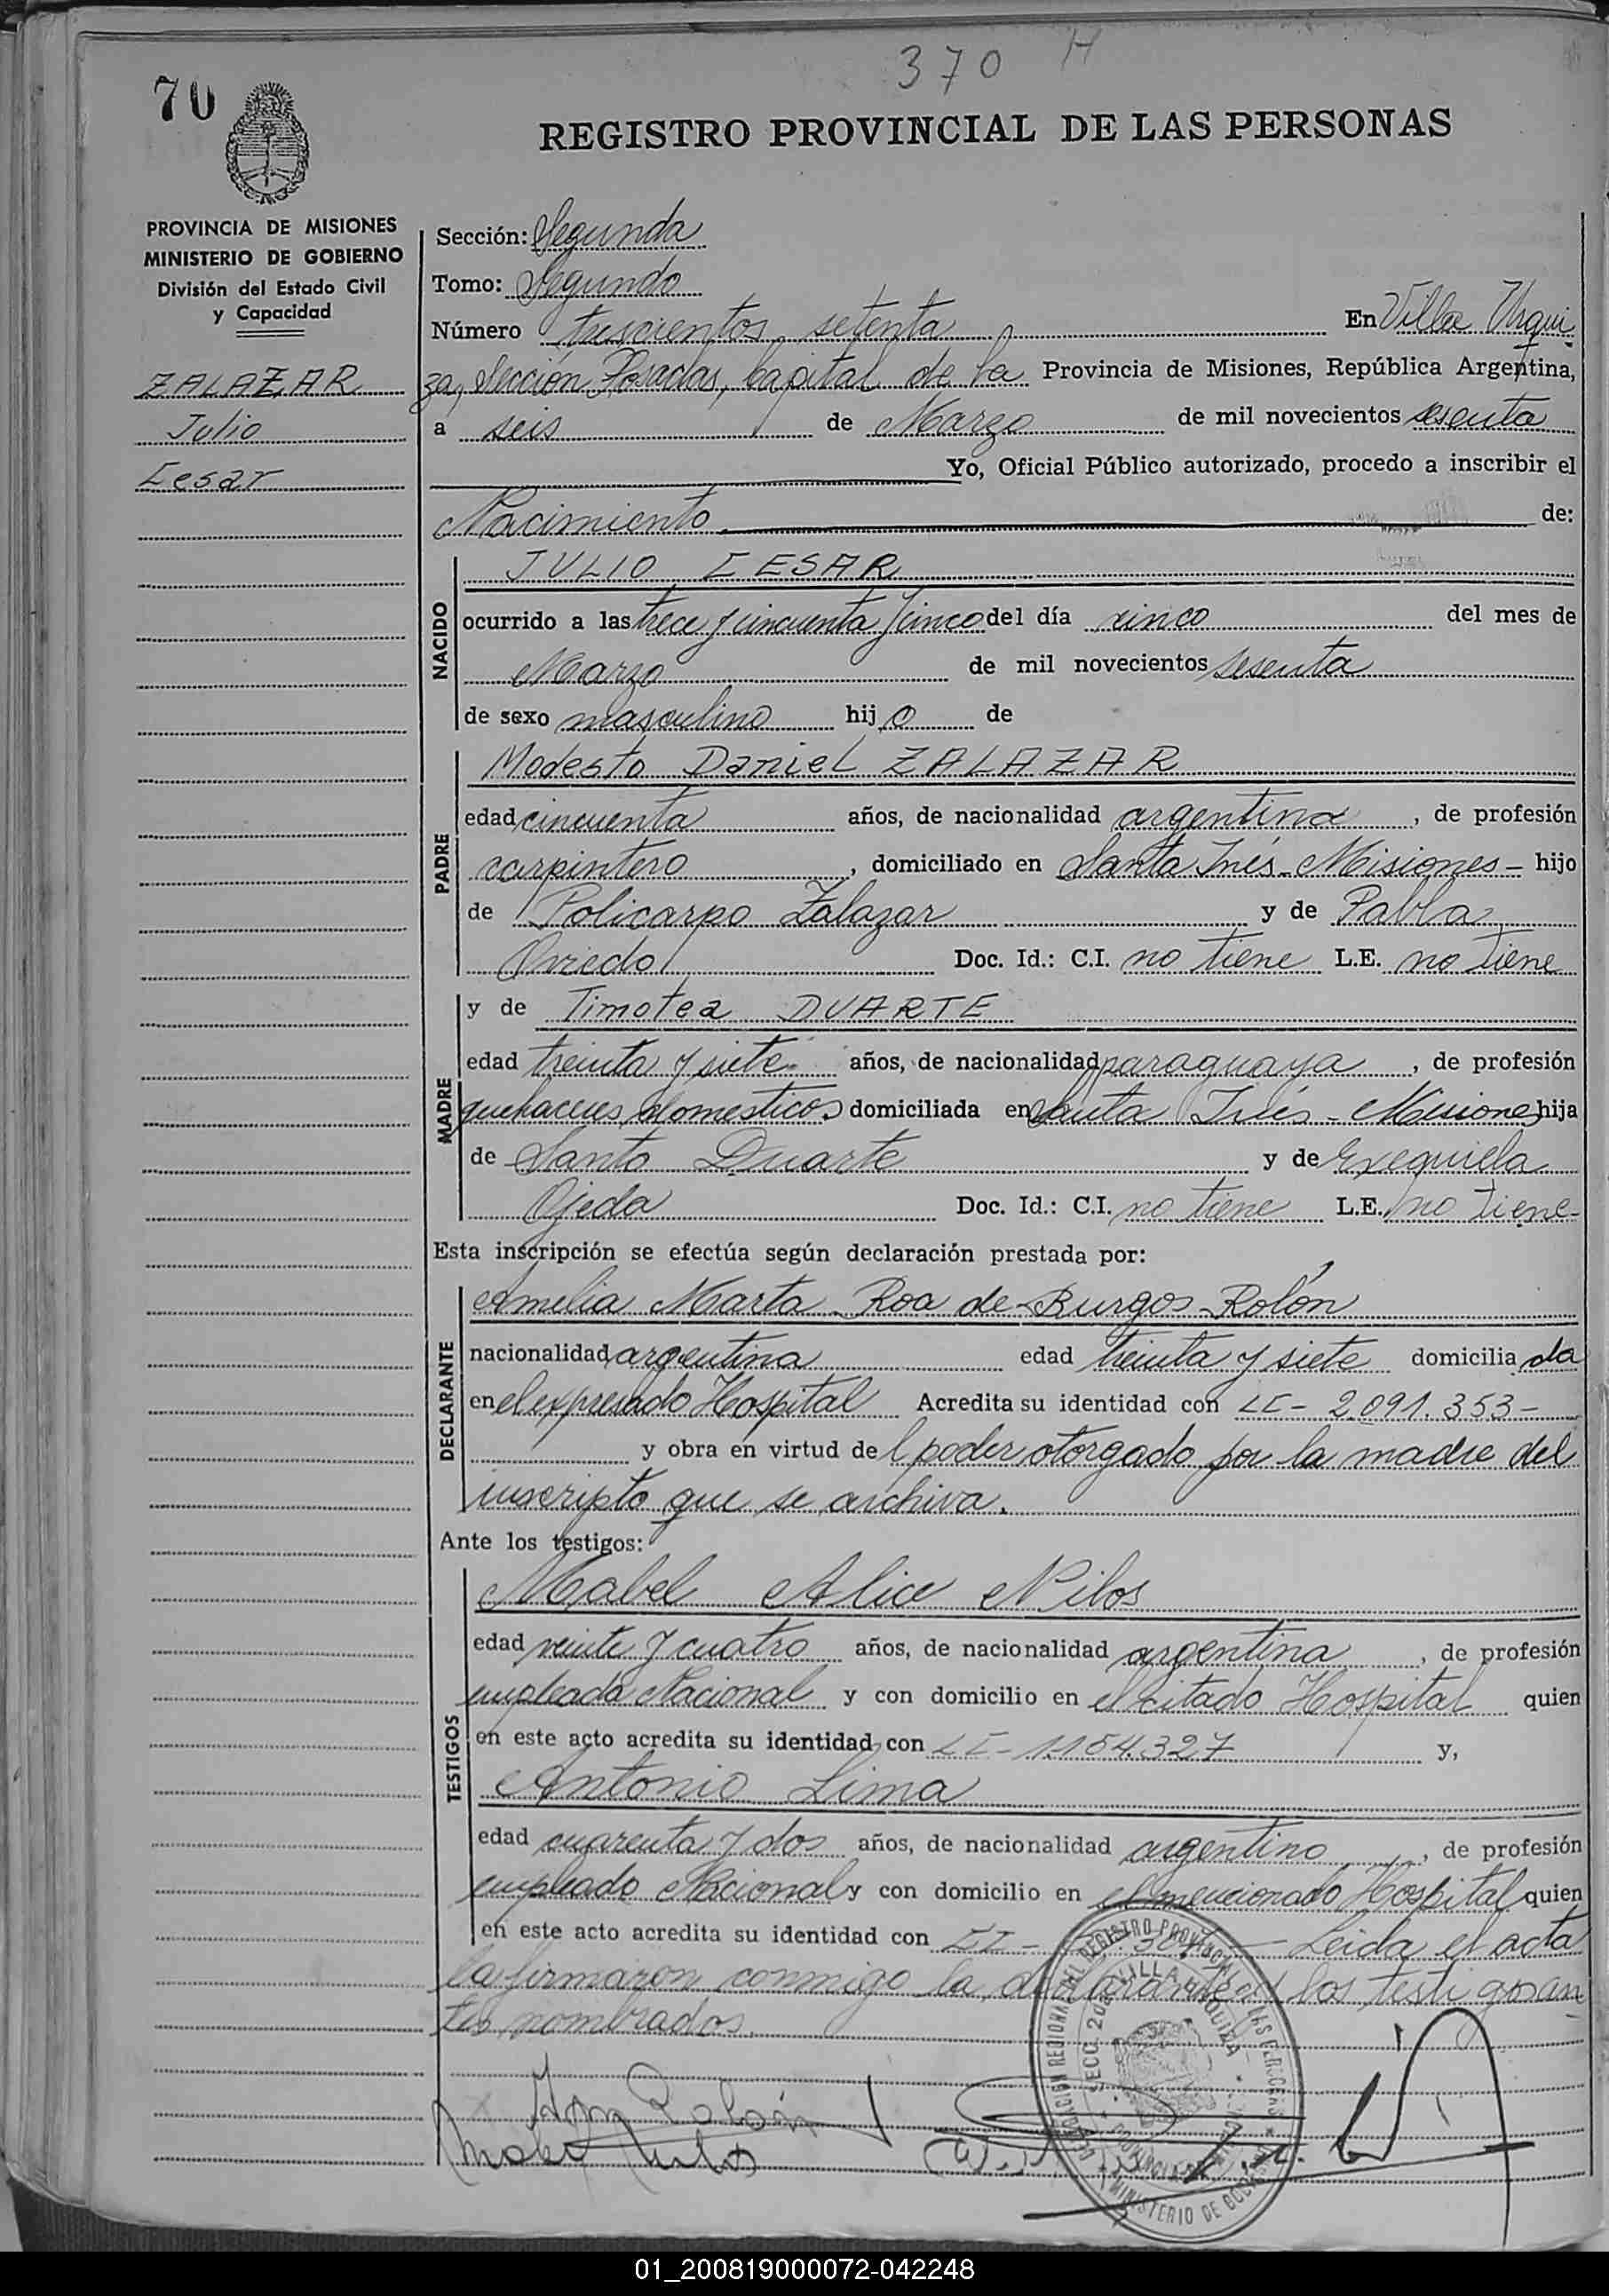 370 H
70
REGISTRO PROVINCIAL DE LAS PERSONAS
PROVINCIA DE MISIONES
MINISTERIO DE GOBIERNO
División del Estado Civil
y Capacidad
ZALAZAR
Julio
Cesar
Sección: Segunda
Tomo: Segundo
Número trescientos setenta En Villa Urqui
za, Sección Posadas, Capital de la Provincia de Misiones, República Argentina,
a seis de Marzo de mil novecientos sesenta
Yo, Oficial Público autorizado, procedo a inscribir el
Nacimiento de:
NACIDO
JULIO CESAR
ocurrido a las trece y cincuenta y cinco del día cinco del mes de
Marzo de mil novecientos sesenta
de sexo masculino hijo de
PADRE
Modesto Daniel ZALAZAR
edad cincuenta años, de nacionalidad argentina, de profesión
carpintero, domiciliado en Santa Inés - Misiones - hijo
de Policarpo Zalazar y de Pabla
Oviedo Doc. Id.: C.I. no tiene L.E. no tiene
MADRE
y de Timotea DUARTE
edad treinta y siete años, de nacionalidad paraguaya, de profesión
quehaceres domesticos domiciliada en Santa Inés - Misiones hija
de Santo Duarte y de Exequiela
Ojeda Doc. Id.: C.I. no tiene L.E. no tiene -
Esta inscripción se efectúa según declaración prestada por:
DECLARANTE
Amelia Marta Roa de Burgos Rolón
nacionalidad argentina edad treinta y siete domiciliada
en el expresado Hospital Acredita su identidad con LC - 2.091.353 -
y obra en virtud del poder otorgado por la madre del
inscripto que se archiva.
Ante los testigos:
TESTIGOS
Mabel Alice Nilos
edad veinte y cuatro años, de nacionalidad argentina, de profesión
empleada Nacional y con domicilio en el citado Hospital quien
en este acto acredita su identidad con LC - 1.154.327 y,
Antonio Lima
edad cuarenta y dos años, de nacionalidad argentino, de profesión
empleado Nacional y con domicilio en el mencionado Hospital quien
en este acto acredita su identidad con CI - Leida el acta
la firmaron conmigo la declarante y los testi goan
tes nombrados.
SECC. 2da. VILLA URQUIZA
MINISTERIO DE GOBIERNO
01_200819000072-042248